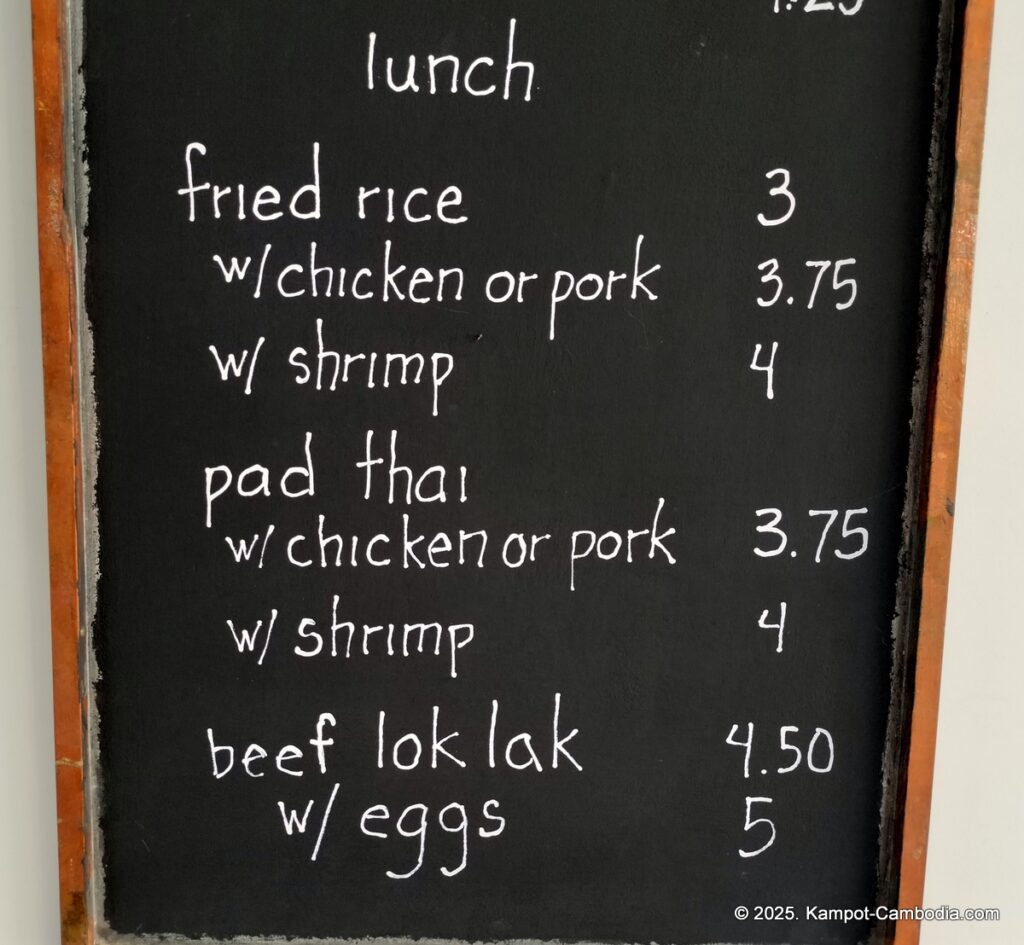 lunch
fried rice 3
w/chicken or pork 3.75
w/ shrimp 4
pad thai
w/chicken or pork 3.75
w/ shrimp 4
beef lok lak 4.50
w/ eggs 5
© 2025. Kampot-Cambodia.com